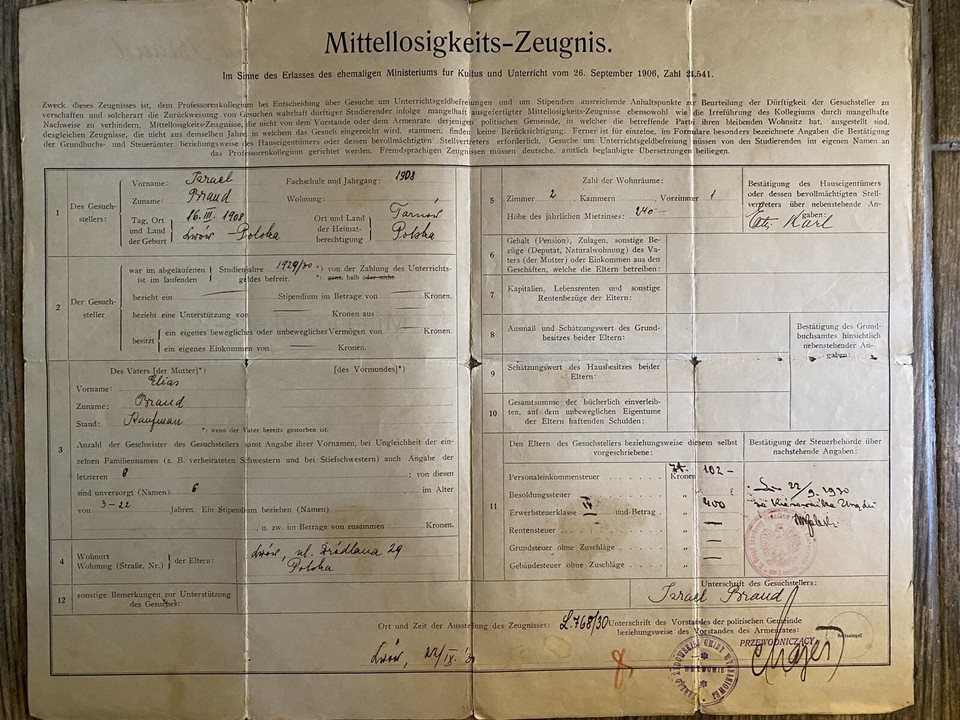 Mittellosigkeits-Zeugnis.
Im Sinne des Erlasses des ehemaligen Ministeriums fur Kultus und Unterricht vom 26. September 1906, Zahl 21.541.
Zweck dieses Zeugnisses ist, dem Professorenkollegium bei Entscheidung über Gesuche um Unterrichtsgeldbefreiungen und um Stipendien ausreichende Anhaltspunkte zur Beurteilung der Dürftigkeit der Gesuchsteller zu
verschaffen und solcherart die Zurückweisung von Gesuchen wahrhaft dürftiger Studierender infolge mangelhaft ausgefertigter Mittellosigkeits-Zeugnisse ebensowohl wie die Irreführung des Kollegiums durch mangelhafte
Nachweise zu verhindern. Mittellosigkeits-Zeugnisse, die nicht vom Vorstande oder dem Armenrate derjenigen politischen Gemeinde, in welcher die betreffende Partei ihren bleibenden Wohnsitz hat, ausgestellt sind,
desgleichen Zeugnisse, die nicht aus demselben Jahre, in welchem das Gesuch eingereicht wird, stammen, finden keine Berücksichtigung. Ferner ist für einzelne, im Formulare besonders bezeichnete Angaben die Bestätigung
der Grundbuchs- und Steuerämter beziehungsweise des Hauseigentümers oder dessen bevollmächtigten Stellvertreters erforderlich. Gesuche um Unterrichtsgeldbefreiung müssen von den Studierenden im eigenen Namen an
das Professorenkollegium gerichtet werden. Fremdsprachigen Zeugnissen müssen deutsche, amtlich beglaubigte Übersetzungen beiliegen.
1
Des Gesuch-
stellers:
Vorname: Israel
Zuname: Brand
Tag, Ort
und Land
der Geburt
16. III. 1908
Lwów - Polska
Fachschule und Jahrgang: 1908
Wohnung:
Ort und Land
der Heimat-
berechtigung
Tarnów
Polska
2
Der Gesuch-
steller
war im abgelaufenen
ist im laufenden
Studienjahre 1929/30 *) von der Zahlung des Unterrichts-
geldes befreit. *) ganz, halb oder nicht.
bezieht ein Stipendium im Betrage von Kronen.
bezieht eine Unterstützung von Kronen aus
besitzt
ein eigenes bewegliches oder unbewegliches Vermögen von Kronen.
ein eigenes Einkommen von Kronen.
3
Des Vaters [der Mutter]*) [des Vormundes]*)
Vorname: Elias
Zuname: Brand
Stand: Kaufman
*) wenn der Vater bereits gestorben ist.
Anzahl der Geschwister des Gesuchstellers samt Angabe ihrer Vornamen, bei Ungleichheit der ein-
zelnen Familiennamen (z. B. verheirateten Schwestern und bei Stiefschwestern) auch Angabe der
letzteren 8 ; von diesen
sind unversorgt (Namen) 6 im Alter
von 3-22 Jahren. Ein Stipendium beziehen (Namen)
, u. zw. im Betrage von zusammen Kronen.
4
Wohnort
Wohnung (Straße, Nr.)
der Eltern:
Lwów, ul. Źródlana 29
Polska
12
sonstige Bemerkungen zur Unterstützung
des Gesuches:
5
Zahl der Wohnräume:
Zimmer 2 , Kammern , Vorzimmer 1
Höhe des jährlichen Mietzinses: 240-
Bestätigung des Hauseigentümers
oder dessen bevollmächtigten Stell-
vertreters über nebenstehende An-
gaben:
Karl
6
Gehalt (Pension), Zulagen, sonstige Be-
züge (Deputat, Naturalwohnung) des Va-
ters (der Mutter) oder Einkommen aus den
Geschäften, welche die Eltern betreiben:
7
Kapitalien, Lebensrenten und sonstige
Rentenbezüge der Eltern:
8
Ausmaß und Schätzungswert des Grund-
besitzes beider Eltern:
Bestätigung des Grund-
buchsamtes hinsichtlich
nebenstehender An-
gaben:
9
Schätzungswert des Hausbesitzes beider
Eltern:
10
Gesamtsumme der bücherlich einverleib-
ten, auf dem unbeweglichen Eigentume
der Eltern haftenden Schulden:
11
Den Eltern des Gesuchstellers beziehungsweise diesem selbst
vorgeschriebene:
Personaleinkommensteuer . . . . . . Kronen Zł. 102 -
Besoldungssteuer . . . . . . „
Erwerbsteuerklasse IV und Betrag . . „ 400
Rentensteuer . . . . . . „
Grundsteuer ohne Zuschläge . . . . „
Gebäudesteuer ohne Zuschläge . . . . „
Bestätigung der Steuerbehörde über
nachstehende Angaben:
22/9. 1930
Unterschrift des Gesuchstellers:
Israel Brand
Ort und Zeit der Ausstellung des Zeugnisses: L.768/30
Unterschrift des Vorstandes der politischen Gemeinde
beziehungsweise des Vorstandes des Armenrates:
PRZEWODNICZĄCY
Lwów, 22/IX.
8.
Amtssiegel